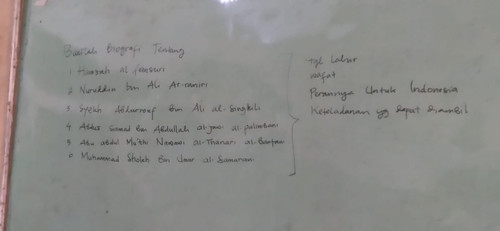 Buatlah Biografi Tentang
1 Hamzah al-fansuri
2 Nuruddin bin Ali Ar-raniri
3 Syekh Abdurrauf Bin Ali al-Singkili
4 Abdus Somad Bin Abdullah al-jawi al-palimbani
5 Abu abdul Mu'thi Nawawi al-Thanari al-Bantani
6 Muhammad Sholeh Bin Umar al-Samarani
tgl Lahir
wafat
Perannya Untuk Indonesia
Keteladanan yg dapat diambil